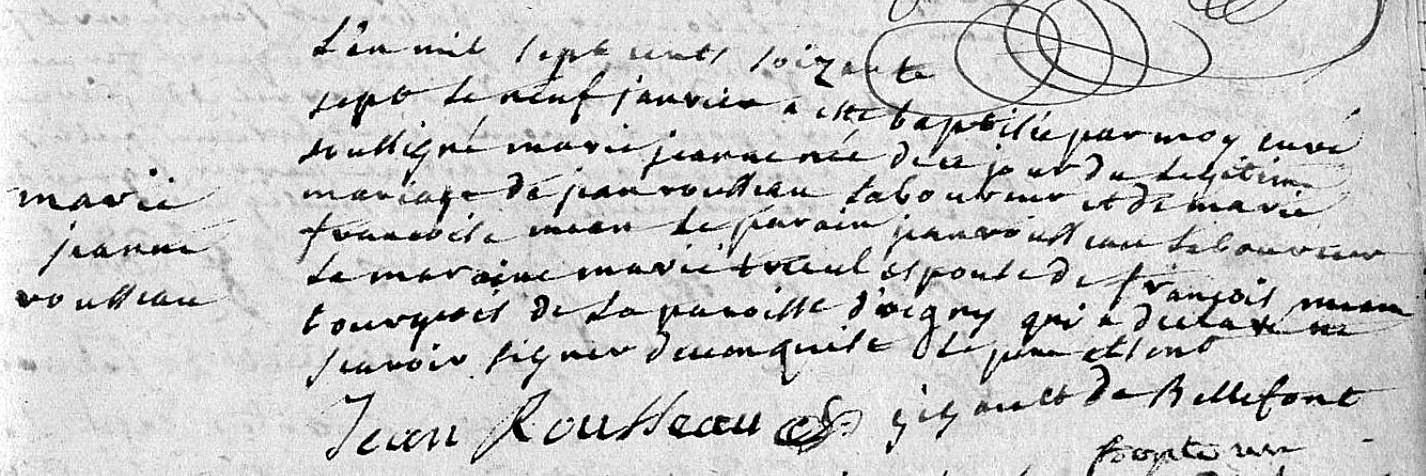 L'en mil sept cents soizante
sept le neuf janvier a esté baptisée par moy curé
soussigné marie jeanne née de ce jour du legitime
marie
mariage de jean rousseau laboureur et de marie
jeanne
francoise mean le parain jean rousseau laboureur
rousseau
la maraine marie treul espouse de françois mean
bourgeois de la paroisse d'oigny qui a declare ne
scavoir signer de ce enquise le pere et
Jean Rousseau gigault de Bellefont